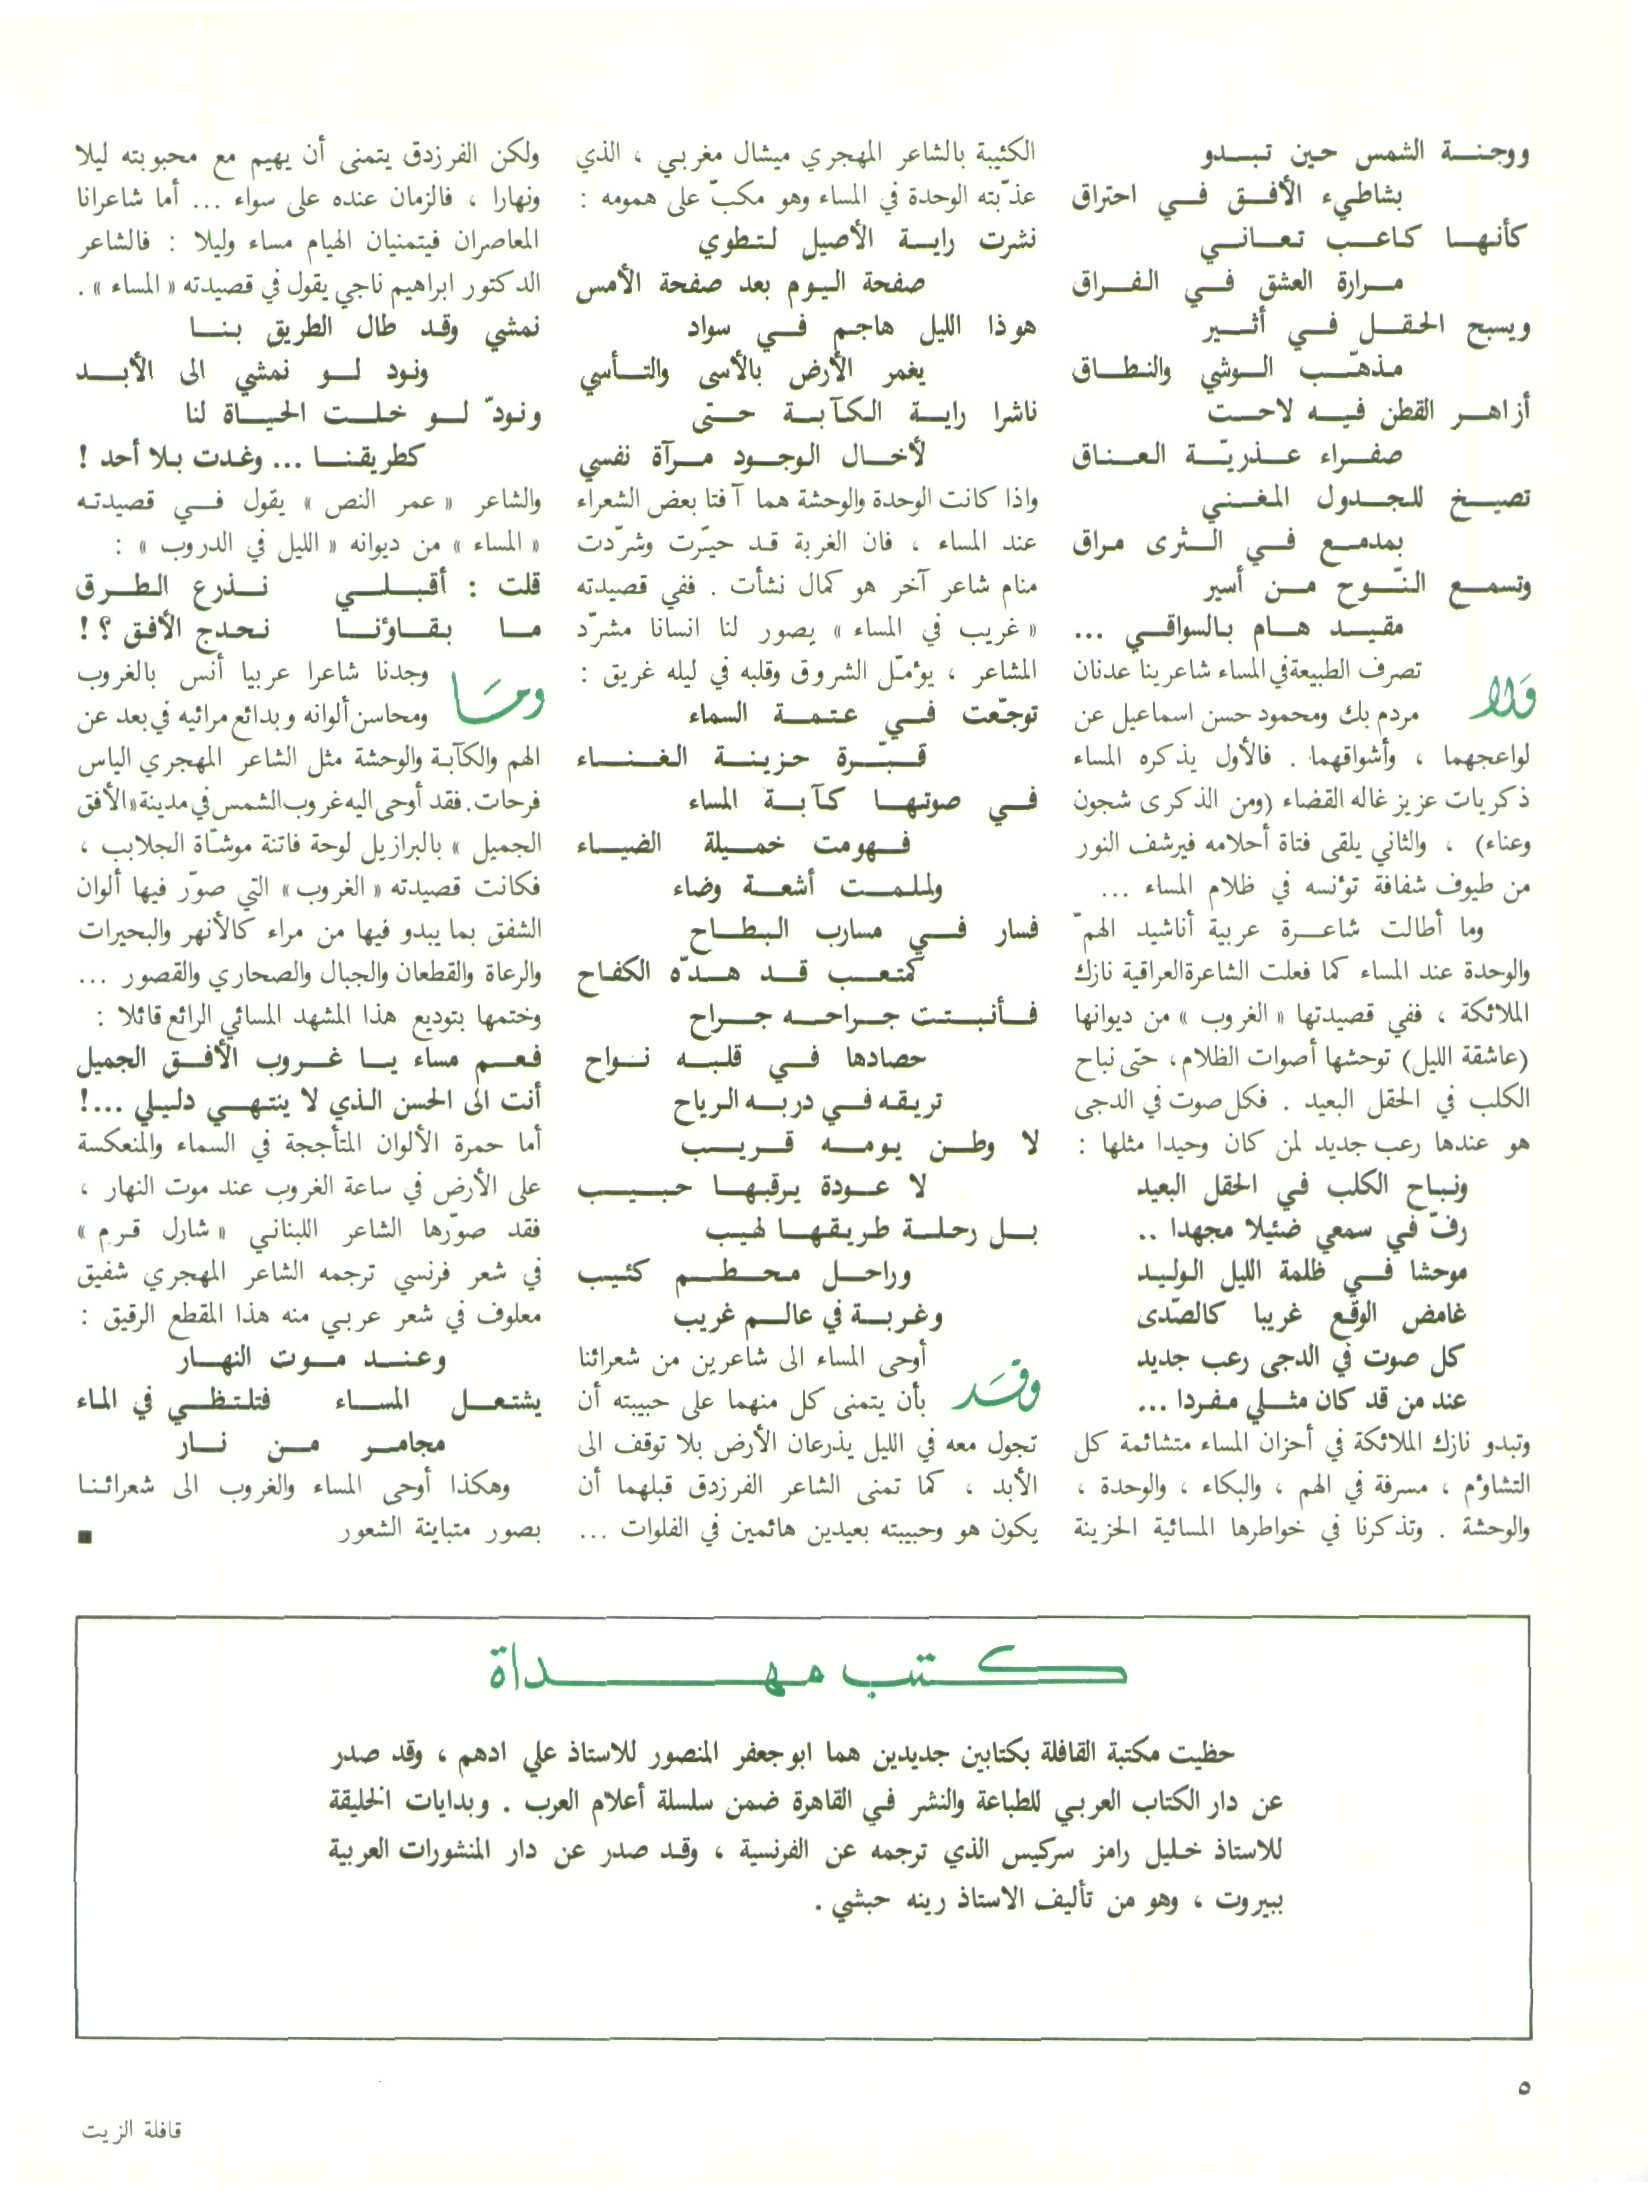 ووجنة الشمس حين تبدو
بشاطيء الأفق في احتراق
كأنها كاعب تعاني
مرارة العشق في الفراق
ويسبح الحقل في أثير
مذهّب الوشي والنطاق
أزاهر القطن فيه لاحت
صفراء عذريّة العناق
تصيخ للجدول المغني
بمدمع في الثرى مراق
وتسمع النّوح من أسير
مقيد هام بالسواقي ...
ولا تصرف الطبيعة في المساء شاعرينا عدنان
مردم بك ومحمود حسن اسماعيل عن
لواعجهما ، وأشواقهما . فالأول يذكره المساء
ذكريات عزيز غاله القضاء (ومن الذكرى شجون
وعناء) ، والثاني يلقى فتاة أحلامه فيرشف النور
من طيوف شفافة تؤنسه في ظلام المساء ...
وما أطالت شاعرة عربية أناشيد الهمّ
والوحدة عند المساء كما فعلت الشاعرة العراقية نازك
الملائكة ، ففي قصيدتها « الغروب » من ديوانها
(عاشقة الليل) توحشها أصوات الظلام، حتى نباح
الكلب في الحقل البعيد . فكل صوت في الدجى
هو عندها رعب جديد لمن كان وحيدا مثلها :
ونباح الكلب في الحقل البعيد
رفّ في سمعي ضئيلا مجهدا ..
موحشا في ظلمة الليل الوليد
غامض الوقع غريبا كالصّدى
كل صوت في الدجى رعب جديد
عند من قد كان مثلي مفردا ...
وتبدو نازك الملائكة في أحزان المساء متشائمة كل
التشاؤم ، مسرفة في الهم ، والبكاء ، والوحدة ،
والوحشة . وتذكرنا في خواطرها المسائية الحزينة
الكئيبة بالشاعر المهجري ميشال مغربي ، الذي
عذّبته الوحدة في المساء وهو مكبّ على همومه :
نشرت راية الأصيل لتطوي
صفحة اليوم بعد صفحة الأمس
هوذا الليل هاجم في سواد
يغمر الأرض بالأسى والتأسي
ناشرا راية الكآبة حتى
لأخال الوجود مرآة نفسي
واذا كانت الوحدة والوحشة هما آفتا بعض الشعراء
عند المساء ، فان الغربة قد حيّرت وشرّدت
منام شاعر آخر هو كمال نشأت . ففي قصيدته
« غريب في المساء » يصور لنا انسانا مشرّد
المشاعر ، يؤمّل الشروق وقلبه في ليله غريق :
توجّعت في عتمة السماء
قبّرة حزينة الغناء
في صوتها كآبة المساء
فهومت خميلة الضياء
ولملمت أشعة وضاء
فسار في مسارب البطاح
كمتعب قد هدّه الكفاح
فأنبتت جراحه جراح
حصادها في قلبه نواح
تريقه في دربه الرياح
لا وطن يومه قريب
لا عودة يرقبها حبيب
بل رحلة طريقها لهيب
وراحل محطم كئيب
وغربة في عالم غريب
وقد أوحى المساء الى شاعرين من شعرائنا
بأن يتمنى كل منهما على حبيبته أن
تجول معه في الليل يذرعان الأرض بلا توقف الى
الأبد ، كما تمنى الشاعر الفرزدق قبلهما أن
يكون هو وحبيبته بعيدين هائمين في الفلوات ...
ولكن الفرزدق يتمنى أن يهيم مع محبوبته ليلا
ونهارا ، فالزمان عنده على سواء ... أما شاعرانا
المعاصران فيتمنيان الهيام مساء وليلا : فالشاعر
الدكتور ابراهيم ناجي يقول في قصيدته « المساء » .
نمشي وقد طال الطريق بنا
ونود لو نمشي الى الأبد
ونودّ لو خلت الحياة لنا
كطريقنا ... وغدت بلا أحد !
والشاعر « عمر النص » يقول في قصيدته
« المساء » من ديوانه « الليل في الدروب » :
قلت : أقبلي نذرع الطرق
ما بقاؤنا نحدج الأفق ؟ !
وما وجدنا شاعرا عربيا أنس بالغروب
ومحاسن ألوانه وبدائع مرائيه في بعد عن
الهم والكآبة والوحشة مثل الشاعر المهجري الياس
فرحات. فقد أوحى اليه غروب الشمس في مدينة «الأفق
الجميل » بالبرازيل لوحة فاتنة موشّاة الجلابب ،
فكانت قصيدته « الغروب » التي صوّر فيها ألوان
الشفق بما يبدو فيها من مراء كالأنهر والبحيرات
والرعاة والقطعان والجبال والصحاري والقصور ...
وختمها بتوديع هذا المشهد المسائي الرائع قائلا :
فعم مساء يا غروب الأفق الجميل
أنت الى الحسن الذي لا ينتهي دليلي ...!
أما حمرة الألوان المتأججة في السماء والمنعكسة
على الأرض في ساعة الغروب عند موت النهار ،
فقد صوّرها الشاعر اللبناني « شارل قرم »
في شعر فرنسي ترجمه الشاعر المهجري شفيق
معلوف في شعر عربي منه هذا المقطع الرقيق :
وعند موت النهار
يشتعل المساء فتلتظي في الماء
مجامر من نار
وهكذا أوحى المساء والغروب الى شعرائنا
بصور متباينة الشعور
كتب مهداة
حظيت مكتبة القافلة بكتابين جديدين هما ابو جعفر المنصور للاستاذ علي ادهم ، وقد صدر
عن دار الكتاب العربي للطباعة والنشر في القاهرة ضمن سلسلة أعلام العرب . وبدايات الخليقة
للاستاذ خليل رامز سركيس الذي ترجمه عن الفرنسية ، وقد صدر عن دار المنشورات العربية
ببيروت ، وهو من تأليف الاستاذ رينه حبشي .
٥
قافلة الزيت